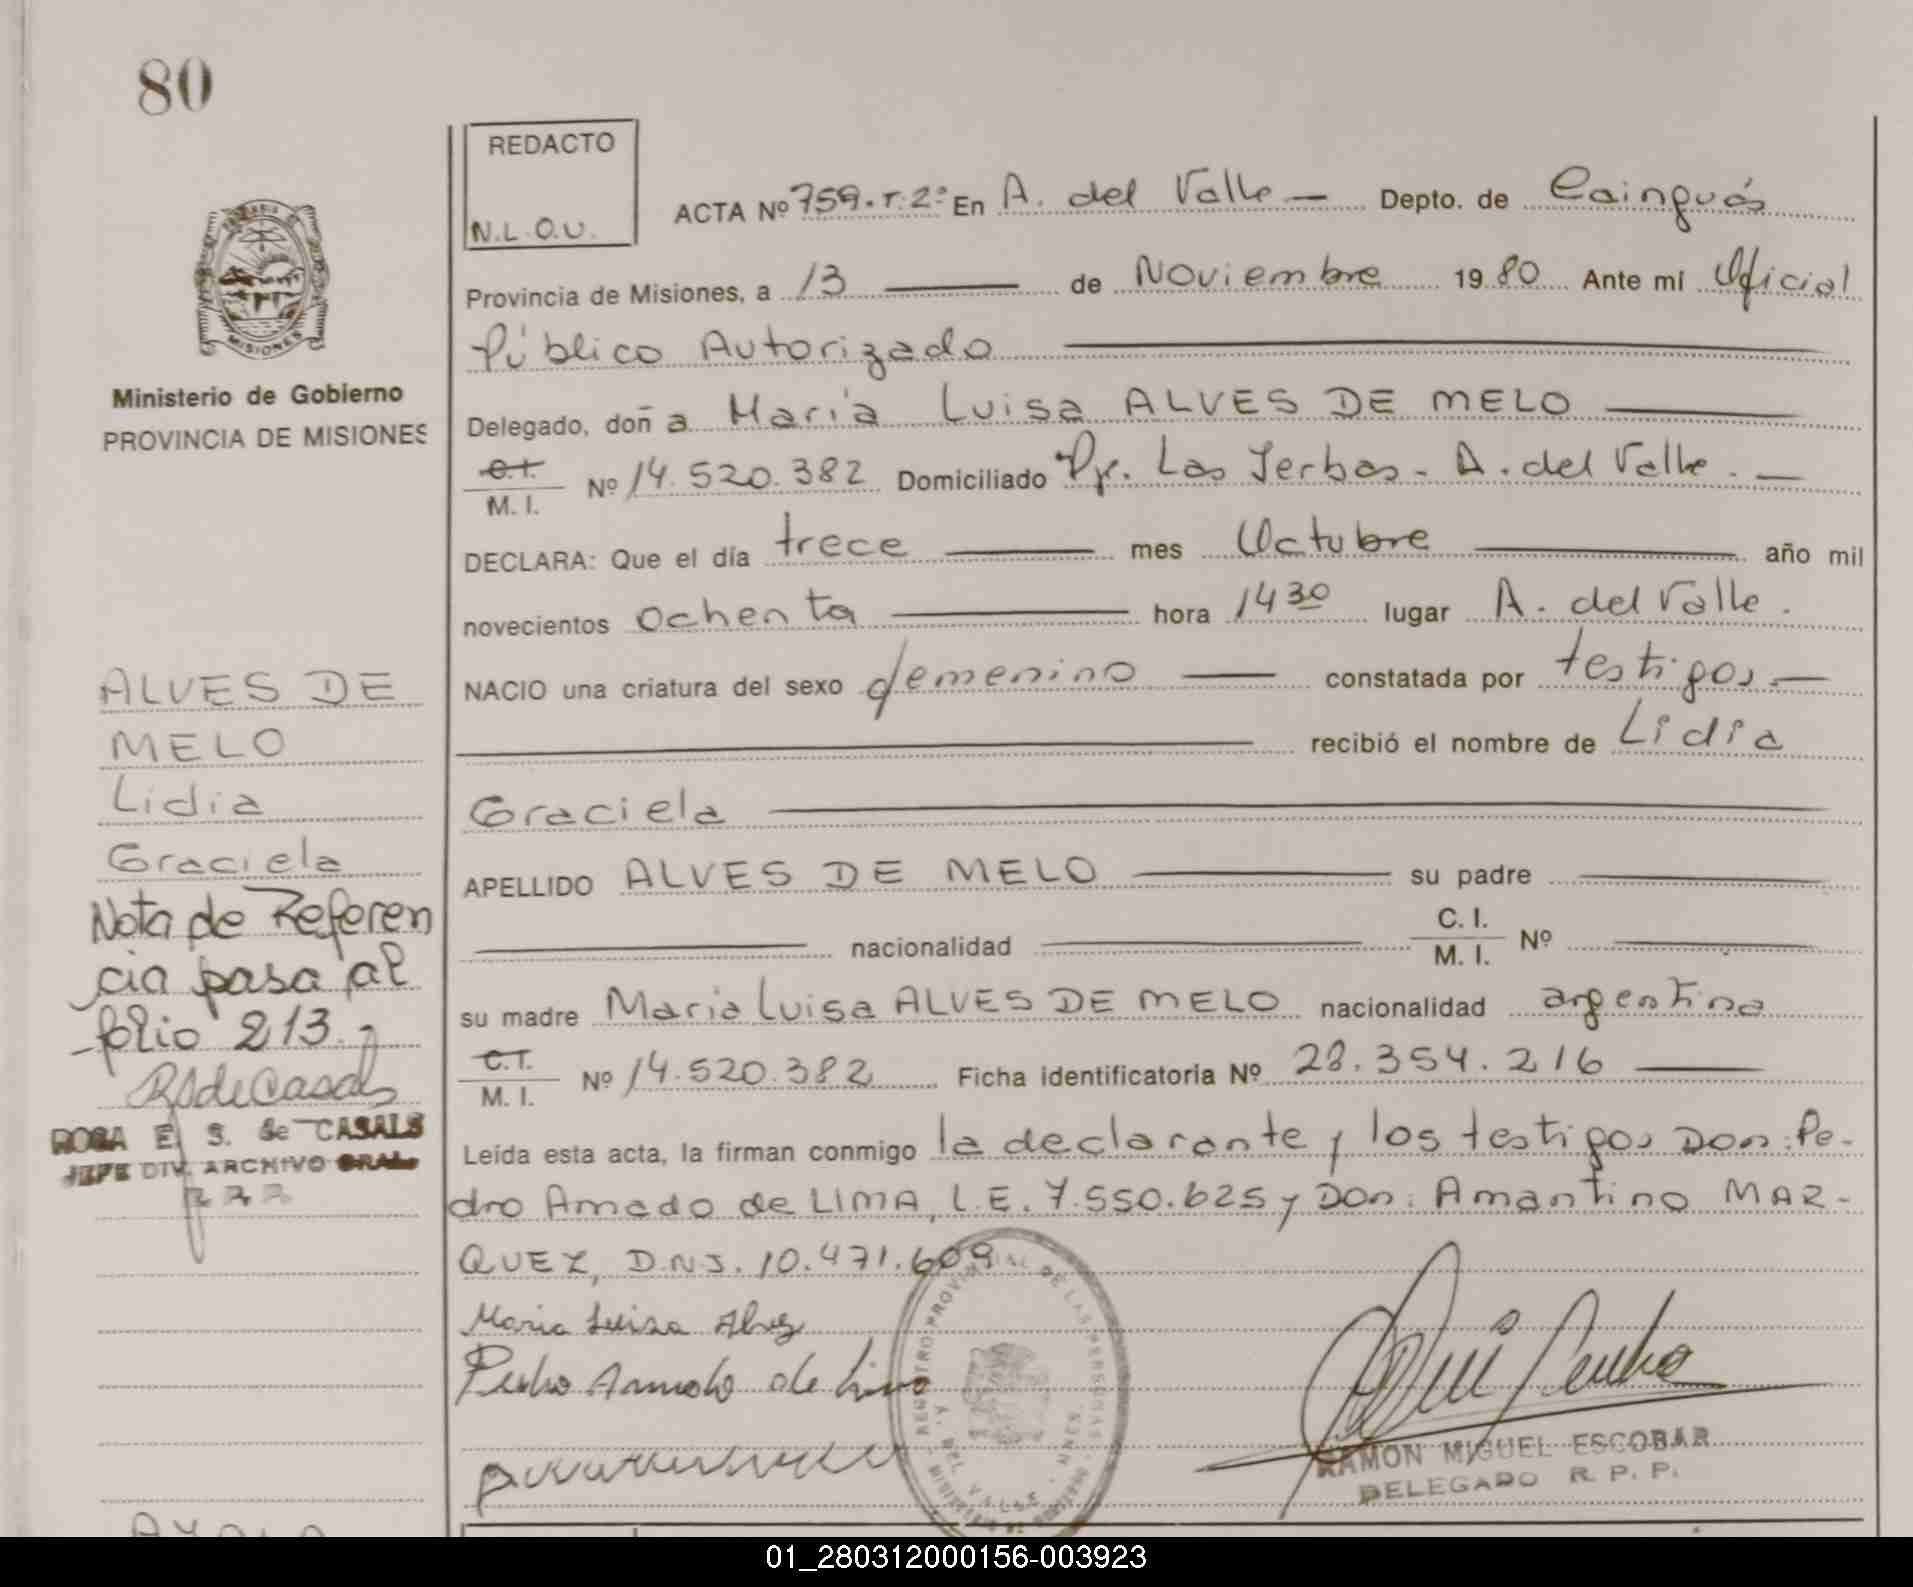 80
REDACTO
N.L.O.U.
ACTA Nº 759.T.2º En A. del Valle — Depto. de Cainguás
Provincia de Misiones, a 13 — de Noviembre 1980 Ante mi Oficial
Público Autorizado
Delegado, doña María Luisa ALVES DE MELO
C.I.
M. I. Nº 14.520.382 Domiciliado Pje. Las Yerbas - A. del Valle. —
DECLARA: Que el día trece — mes Octubre — año mil
novecientos ochenta — hora 14 30 lugar A. del Valle.
NACIO una criatura del sexo femenino — constatada por testigos. —
recibió el nombre de Lidia
Graciela
APELLIDO ALVES DE MELO — su padre —
nacionalidad — C. I.
M. I. Nº —
su madre Maria Luisa ALVES DE MELO nacionalidad argentina
C.I.
M. I. Nº 14.520.382 Ficha identificatoria Nº 28.354.216 —
Leída esta acta, la firman conmigo la declarante y los testigos Don: Pe-
dro Amado de LIMA, L.E. 7.550.625 y Don: Amantino MAR-
QUEZ, D.N.I. 10.471.609
Maria Luisa Alves
Pedro Amado de Lima
REGISTRO PROVINCIAL DE LAS PERSONAS
A. DEL VALLE - MNES.
MINISTERIO DE GOBIERNO
RAMON MIGUEL ESCOBAR
DELEGADO R. P. P.
MISIONES
Ministerio de Gobierno
PROVINCIA DE MISIONES
ALVES DE
MELO
Lidia
Graciela
Nota de Referen
cia pasa al
folio 213.-
RSdeCasals
ROSA E. S. de CASALS
JEFE DIV. ARCHIVO GRAL.
01_280312000156-003923